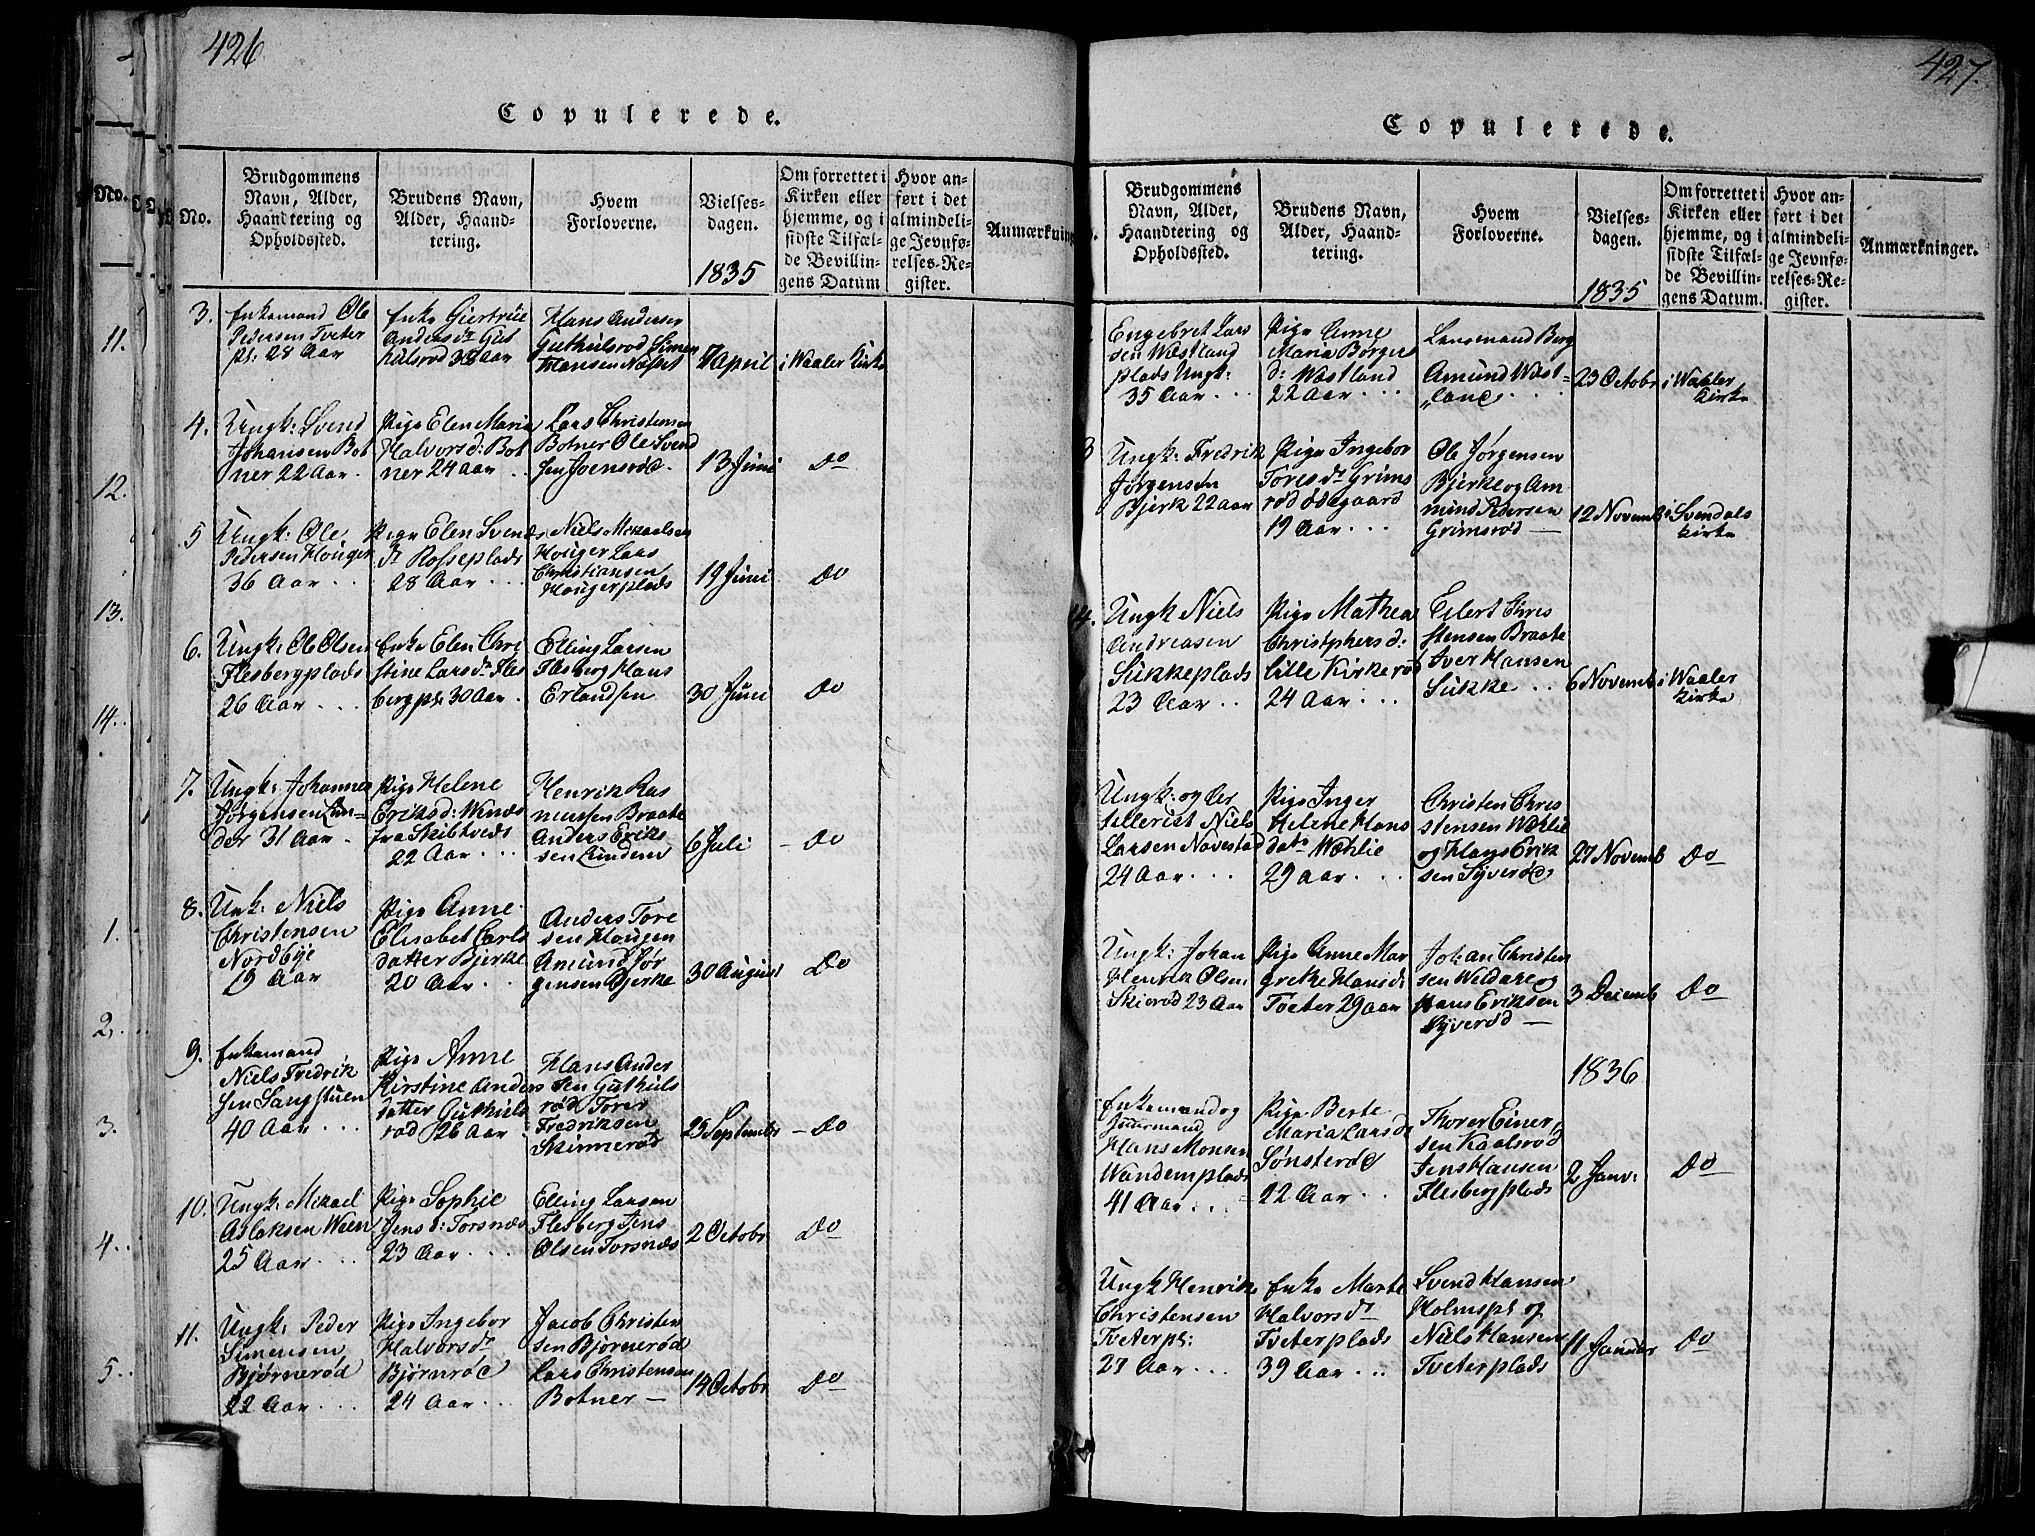 426
Copulerede.
No.
Brudgommens
Navn, Alder,
Haandtering og
Opholdssted.
Brudens Navn,
Alder, Haand-
tering.
Hvem
Forloverne.
Vielses-
dagen.
1835
Om forrettet i
Kirken eller
hjemme, og i
sidste Tilfæl-
de Bevillin-
gens Datum
Hvor an-
ført i det
almindeli-
ge Jevnfø-
relses-Re-
gister.
Anmærkning
3.
Enkemand Ole
Pedersen Tveter
pl: 28 Aar
Enke Giertrue
Andersdr Gut
hulsrød 38 aar
Hans Andersen
Guthulsrød Simen
Hansen Næset
7 April
i Waaler Kirke
4.
Ungk: Svend
Johansen Bot
ner 22 Aar.
Pige Elen Maria
Halvorsd: Bot
ner 24 aar
Lars Christensen
Botner Ole Svend
sen Joensrød.
13 Juni
Do
5
Ungk: Ole
Pedersen Houger
36 Aar . .
Pige Elen Svends
dr Rosseplads
28 Aar . . .
Niels Mikaelsen
Houger Lars
Christiansen
Hougerplads
19 Juni
Do
6.
Ungk: Ole Olsen
Flesbergplads
26 Aar . . .
Enke Elen Chri
stine Larsdr Fles
bergpl: 30 Aar .
Elling Larsen
Flesberg Hans
Erlandsen
30 Juni
Do
7.
Ungk: Johannes
Jørgensen Lun=
der 31 Aar .
Pige Helene
Eriksd: Winæs
fra Skibtveds
22 Aar . . .
Henrik Ras
mussen Braate
Anders Erik
sen Lundem
6 Juli
- Do
8.
Unk: Niels
Christensen
Nordbye
19 Aar
Pige Anne
Elisabet Carls
datter Bjerke
20 Aar . .
Anders Tore
sen Hougen
Amund Jør
gensen Bjerke
30 August
Do
9.
Enkemand
Niels Fredrik
sen Sangstuen
40 Aar . . .
Pige Anne
Kirstine Anders
datter Guthuls
rød 26 Aar .
Hans Ander
sen Guthuls
rød Torer
Fredriksen
Skinnerød
25 Septembr
- Do
10.
Ungk: Mikael
Aslaksen Ween
25 Aar . . .
Pige Sophie
Jensd: Torsnæs
23 Aar . . .
Elling Larsen
Flesberg Jens
Olsen Torsnæs
2 Octobr
Do
11.
Ungk: Peder
Simensen
Bjørnerød
22 Aar . . .
Pige Ingebor
Halvorsdr
Bjørnrød
24 Aar . . .
Jacob Christen
sen Bjørnerød
Lars Christensen
Botner —
14 Octobr
Do
No.
11.
12.
13.
14.
1.
2.
3.
4.
5.
427.
Copulerede.
Brudgommens
Navn, Alder,
Haandtering og
Opholdssted.
Brudens Navn,
Alder, Haand-
tering.
Hvem
Forloverne.
Vielses-
dagen.
1835
Om forrettet i
Kirken eller
hjemme, og i
sidste Tilfæl-
de Bevillin-
gens Datum.
Hvor an-
ført i det
almindeli-
ge Jevnfø-
relses-Re-
gister.
Anmærkninger.
Engebret Lars
sen Wæstland
plads Ungk:
35 Aar . . .
Pige Anne
Maria Børges
d: Wæstland
22 Aar . . .
Lensmand Berg
Amund Wæst=
land . . .
23 Octobr
i Waaler
Kirke
3
Ungk: Fredrik
Jørgensen
Bjerk 22 aar
Pige Ingebor
Toresdr Grims
rød Ødegaard
19 Aar . . .
Ole Jørgensen
Bjerke og Am
mund Pedersen
Grimsrød —
12 Novemb
i Svendals
Kirke
14.
Ungk Niels
Andreasen
Sukkeplads
23 Aar . .
Pige Mathea
Christphersd:
lille Kirkerød
24 Aar . . .
Eilert Chris
stensen Braate
Iver Hansen
Sukke . .
6 Novemb
i Waaler
Kirke
Ungk: og Ar
tillerist Niels
Larsen Navestad
24 Aar . . .
Pige Inger
Helene Hans
datr Wæhlie
29 aar . . .
Christen Chris
stensen Wæhlie
og Hans Erik
sen Syverød
27 Novemb
Do
Ungk: Johan
Henrik Olsen
Skierød 23 Aar
Pige Anne Mar
grethe Hansd:
Tveter 29 aar
Johan Christen
sen Weidahl og
Hans Eriksen
Syverød —
3 Decemb
Do
1836
Enkemand og
Huusmand
Hans Monsen
Wandemplads
41 Aar . . .
Pige Berte
Maria Larsdr
Sønsterød
22 Aar . .
Thorer Einer
sen Kaalsrød
Jens Hansen
Flesbergplads
2 Janv:
Do
Ungk Henrik
Christensen
Tveterpl:
27 Aar . .
Enke Marte
Halvorsdr
Tveterplads
39 Aar . . .
Svend Hansen
Holmspl og
Niels Hansen
Tveterplads
11 Januar
Do